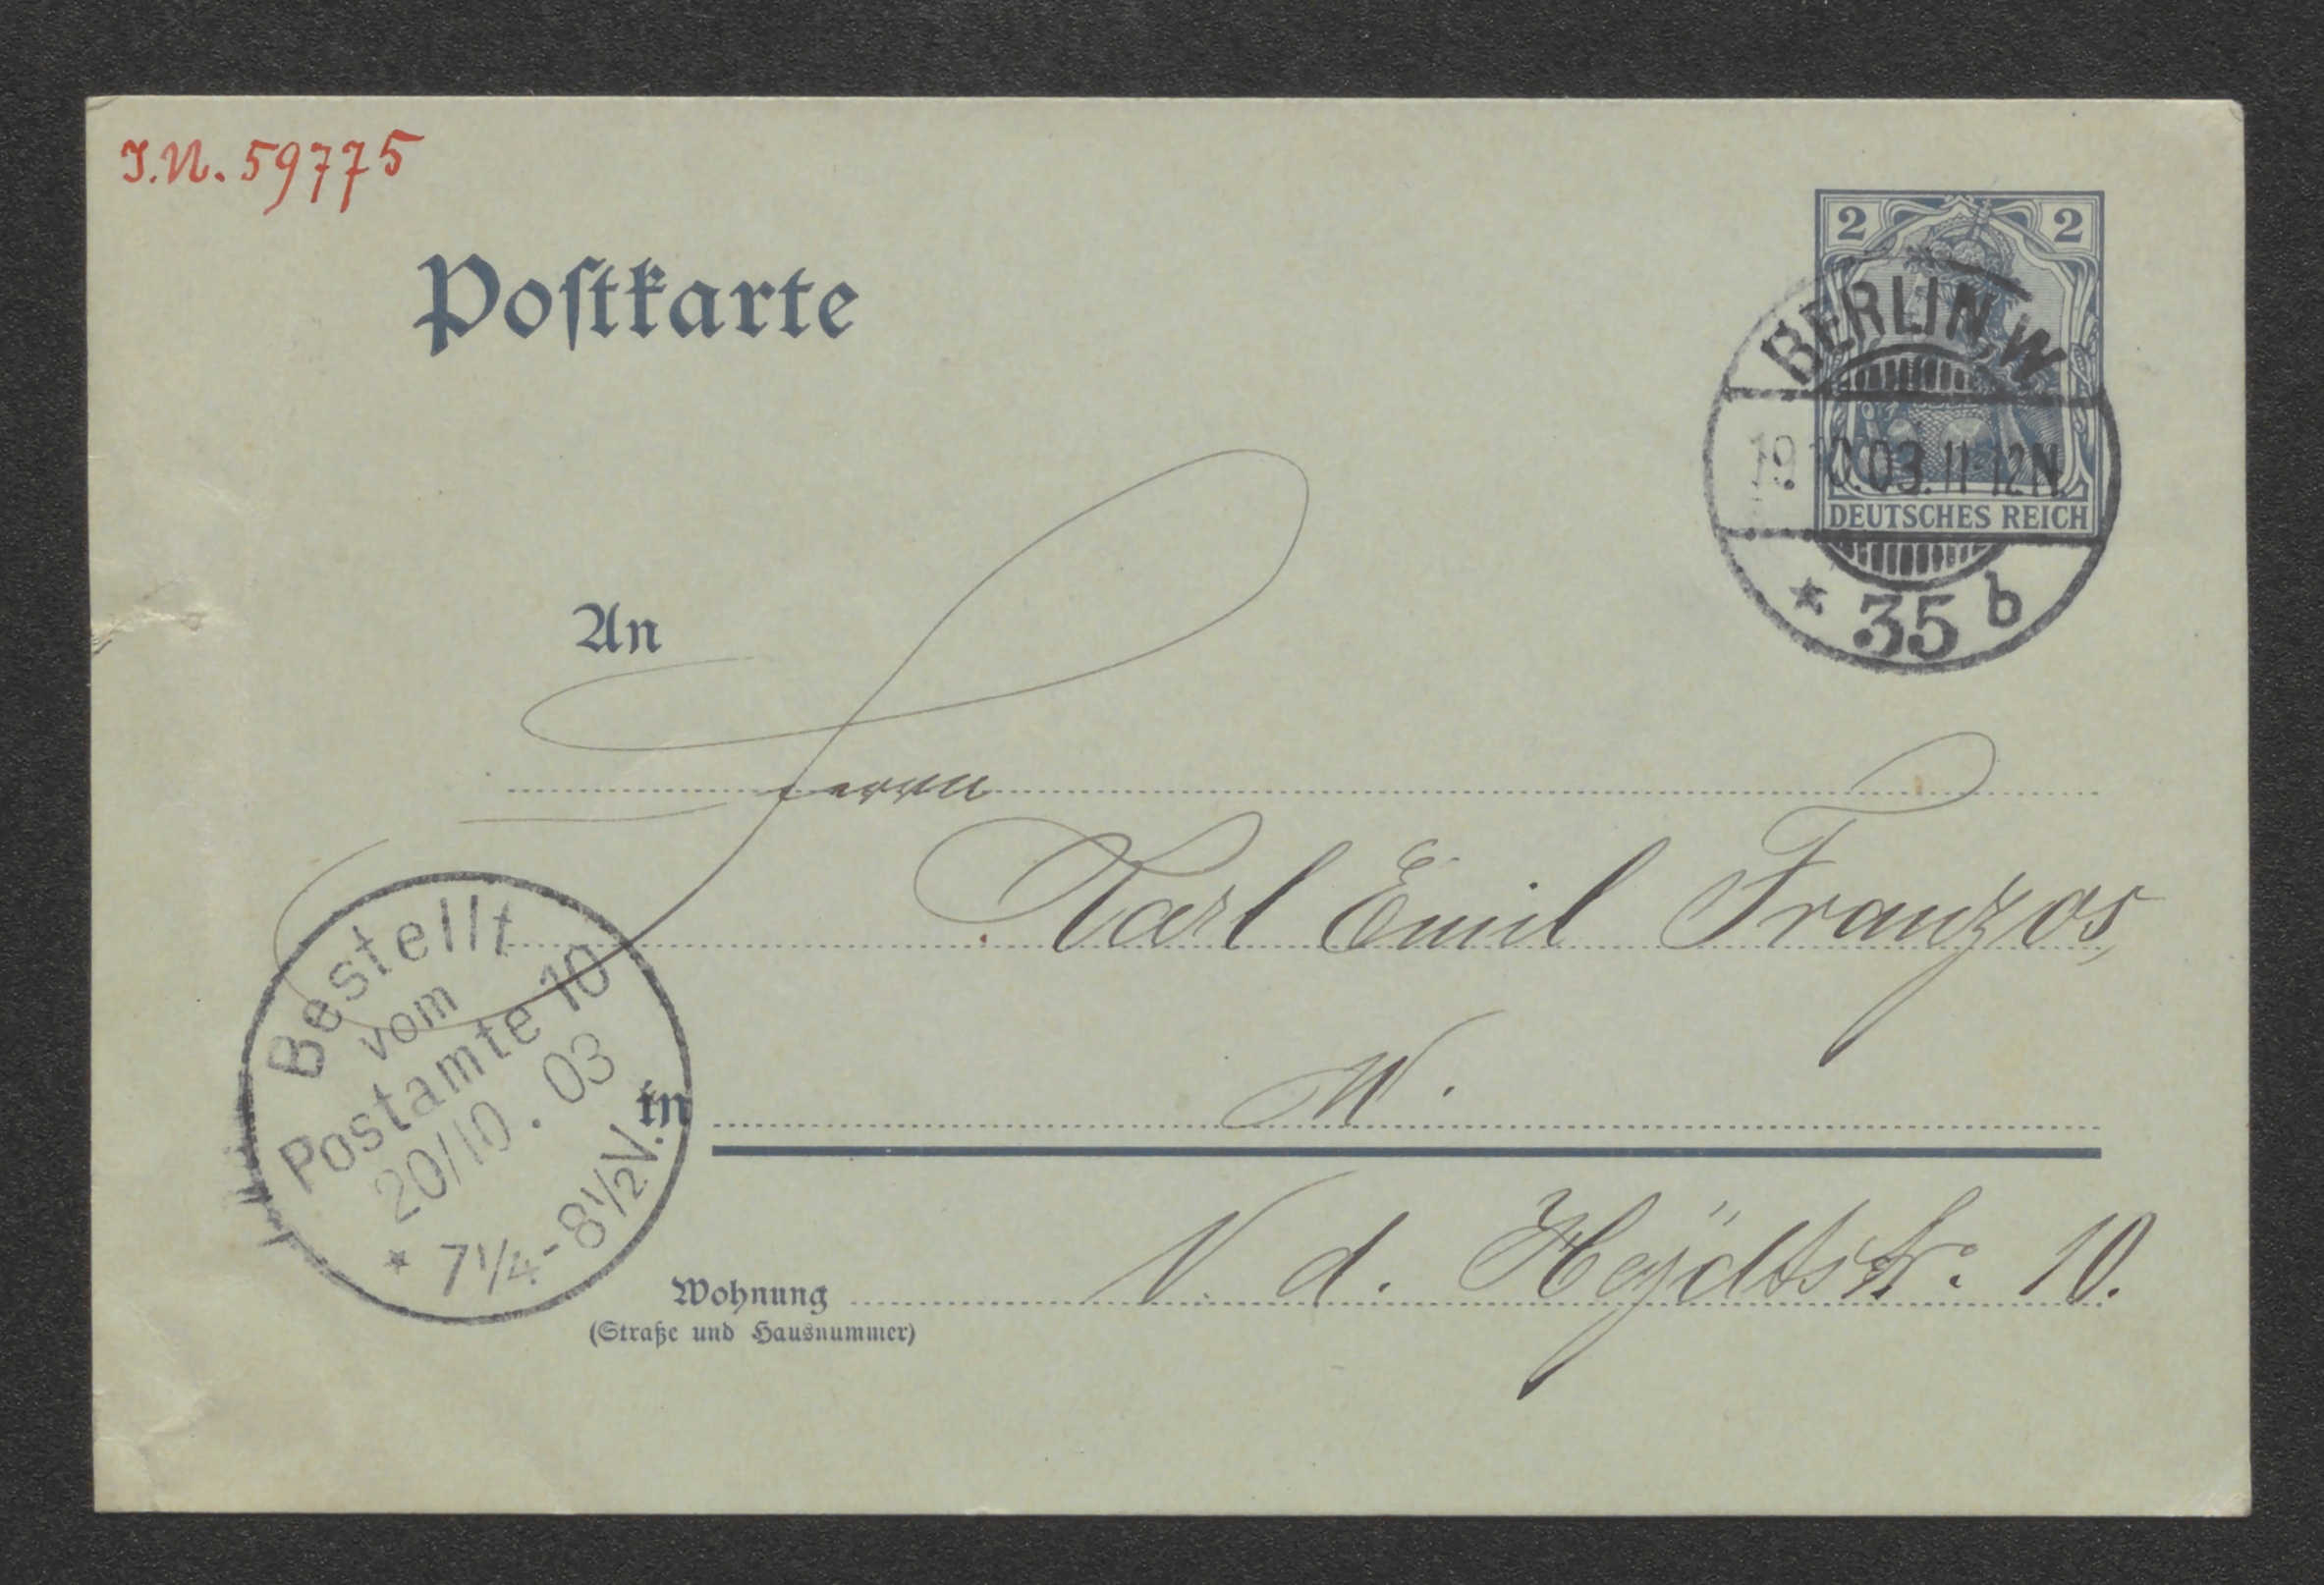 I.N. 59775
Postkarte
2 2
DEUTSCHES REICH
BERLIN, W
19.10.03.11-12N.
* 35 b
An
Herrn
Karl Emil Franzos,
in W.
Wohnung V. d. Heÿdtstr. 10.
(Straße und Hausnummer)
Bestellt
vom
Postamte 10
20/10.03
* 7 1/4-8 1/2 V.